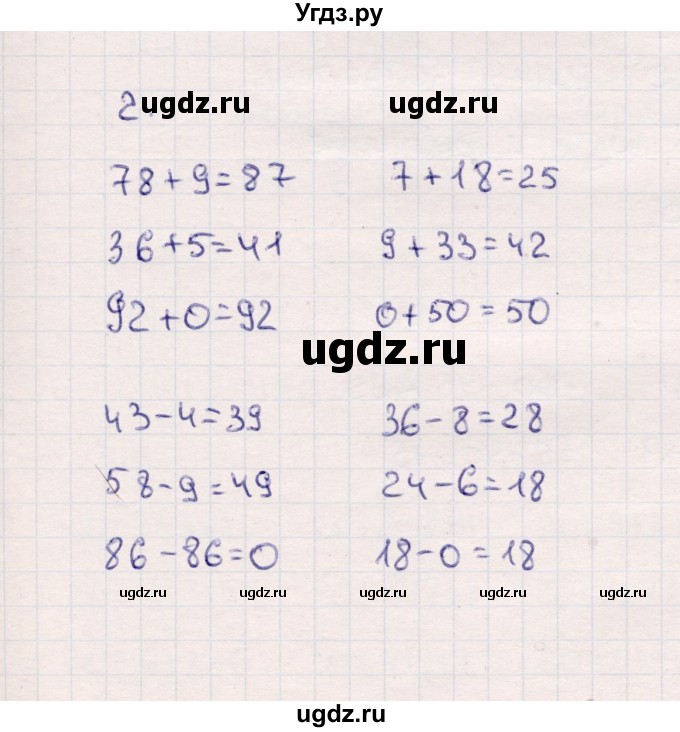 Угдз.ру
2. ugdz.ru ugdz.ru
78+9=87 7+18=25
36+5=41 9+33=42
92+0=92 0+50=50
ugdz.ru
43-4=39 36-8=28
58-9=49 24-6=18
86-86=0 18-0=18
ugdz.ru ugdz.ru ugdz.ru ugdz.ru ugdz.ru
ugdz.ru